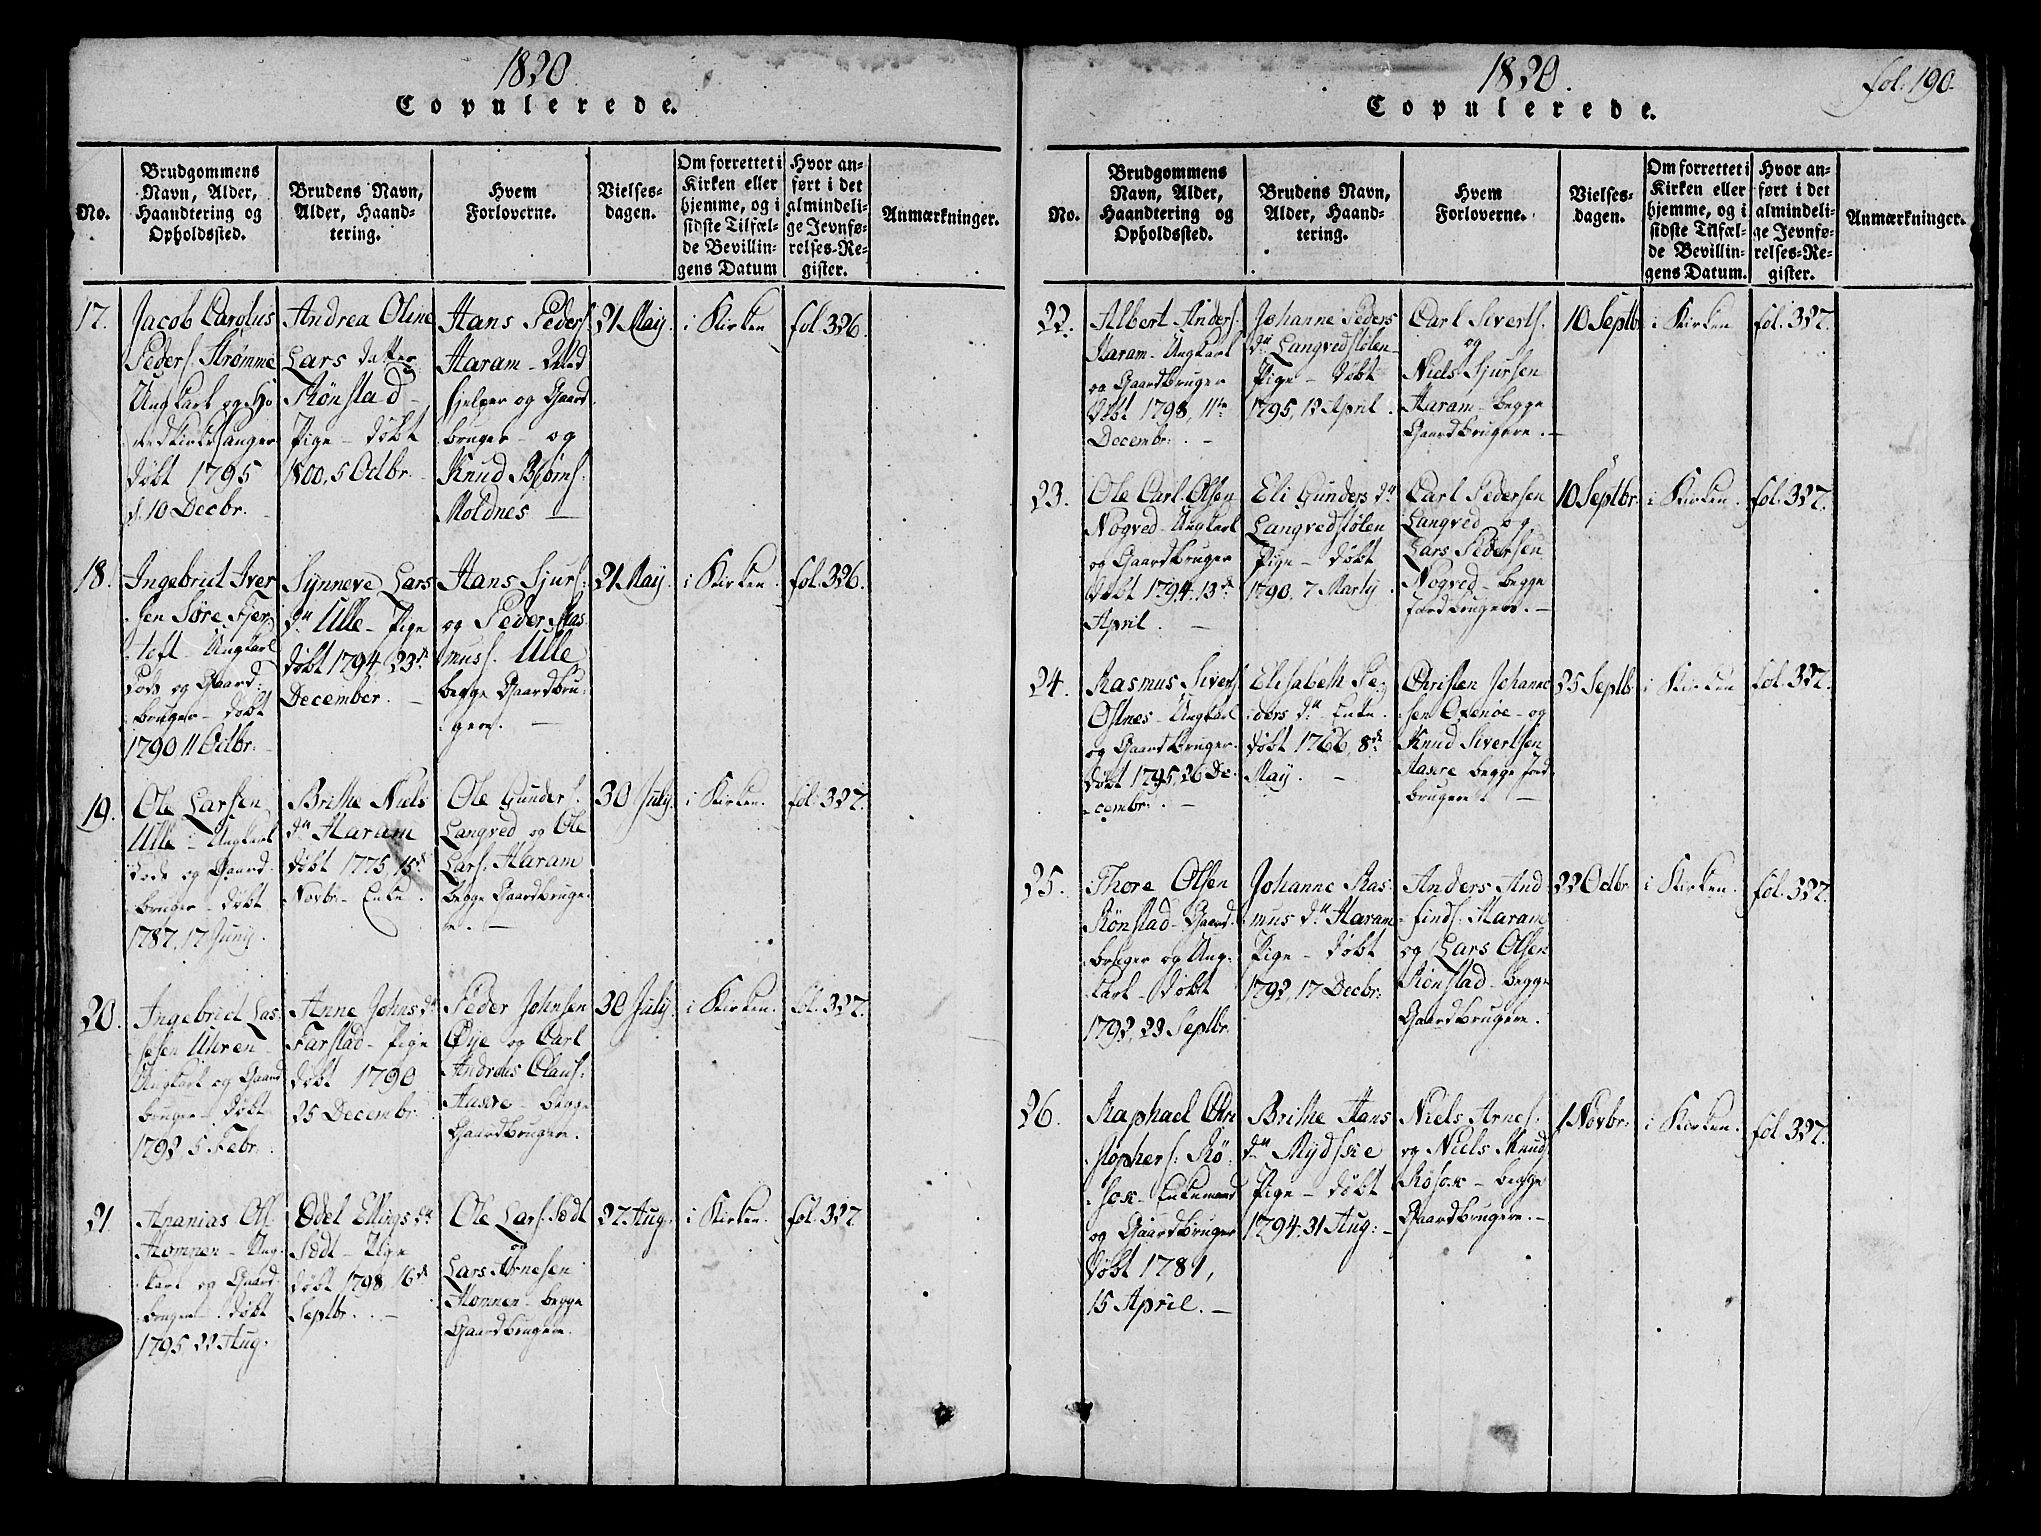 1820
Copulerede.
No.
Brudgommens
Navn, Alder,
Haandtering og
Opholdssted.
Brudens Navn,
Alder, Haand-
tering.
Hvem
Forloverne.
Vielses-
dagen.
Om forrettet i
Kirken eller
hjemme, og i
sidste Tilfæl-
de Bevillin-
gens Datum
Hvor an-
ført i det
almindeli-
ge Jevnfø-
relses-Re-
gister.
Anmærkninger.
17.
Jacob Carolus
Peders. Strømme
Ungkarl og
døbt 1795
d. 10 Decbr.
Andrea Oline
Lars datter
Rønstad
Pige - døbt
1800, 5 Octbr.
Hans Peders.
Haram
hjelper og Gaard
bruger - og
Knud Bjørns.
Moldnes
21 May
i Kirken
fol. 326.
18.
Ingebrict Iver
sen Søre Fjer
toft - Ungkarl
og Gaard
bruger - døbt
1790 11 Octbr.
Synneve Lars
dtr Ulle - Pige
døbt 1794, 23de
December.
Hans Sjurs.
og Peder Ras
mus. Ulle
begge Gaardbru
gere.
21 May.
i Kirken.
fol. 326.
19.
Ole Larsen
Ulle - Ungkarl
og Gaard
bruger - døbt
1787, 17 Juny.
Brithe Niels
dtr Haram
døbt 1775, 15de
Novbr - Enke.
Ole Gunders.
Langved og Ole
Lars. Haram
begge Gaardbruge
re.
30 July.
i Kirken.
fol. 327.
20.
Ingebrict Las
sesen Uhren
Ungkarl og Gaard
bruger - døbt
1792 5 Febr.
Anne Johns dtr
Farstad - Pige
døbt 1790
25 Decembr.
Peder Johnsen
Øye og Carl
Andreas Claus.
Aasre - begge
Gaardbrugere.
30 July.
i Kirken.
fol. 327.
21.
Ananias Ols.
Homnen - Ung
karl og Gaard
bruger - døbt
1795 22 Aug.
Odel Ellings dtr
Sødt - Pige
døbt 1798, 16de
Septbr.
Ole Lars. Sødt
og
Lars Arnesen
Homnen - begge
Gaardbrugere.
27 Aug.
i Kirken.
fol. 327
1820.
fol. 190.
Copulerede.
No.
Brudgommens
Navn, Alder,
Haandtering og
Opholdssted.
Brudens Navn,
Alder, Haand-
tering.
Hvem
Forloverne.
Vielses-
dagen.
Om forrettet i
Kirken eller
hjemme, og i
sidste Tilfæl-
de Bevillin-
gens Datum.
Hvor an-
ført i det
almindeli-
ge Jevnfø-
relses-Re-
gister.
Anmærkninger.
22.
Albert Anders.
Haram - Ungkarl
og Gaardbruger
døbt 1798, 11te
Decembr.
Johanne Peders
dtr Langvedstølen
Pige - døbt
1795, 12 April.
Carl Siverts.
og
Niels Sjursen
Haram - begge
Gaardbrugere.
10 Septbr
i Kirken.
fol. 327.
23.
Ole Carl Olsen
Nogved - Ungkarl
og Gaardbruger
døbt 1794, 13de
April.
Eli Gunders dtr
Langvedstølen
Pige - døbt
1790, 7 Marty.
Carl Pedersen
Langved og
Lars Pedersen
Nogved - begge
10 Septbr.
i Kirken.
fol. 327.
24.
Rasmus Sivers.
Ostnes - Ungkarl
og Gaardbruger
døbt 1795, 26 De
cembr.
Elisabeth Pe
ders dtr - Enke
døbt 1766, 8de
May.
Christen Johanne
sen Oxenøe - og
Knud Sivertsen
Aasre begge Jord
brugere
25 Septb.
i Kirken
fol. 327.
25.
Thore Olsen
Rønstad - Gaard
bruger og Ung
karl - døbt
1792, 23 Septbr.
Johanne Ras
mus dtr Haram
Pige - døbt
1792, 17 Decbr.
Anders And
finds. Haram
og Lars Olsen
Rønstad - begge
Gaardbrugere.
22 Octbr.
i Kirken.
fol. 327.
26.
Raphael Chri
stophers. Rø
sok - Enkemand
og Gaardbruger
døbt 1781,
15 April.
Brithe Hans
dtr Mydske
Pige - døbt
1794. 31 Aug:
Niels Arnes.
og Niels Knuds.
Røsok - begge
Gaardbrugere.
1 Novbr.
i Kirken.
fol. 327.